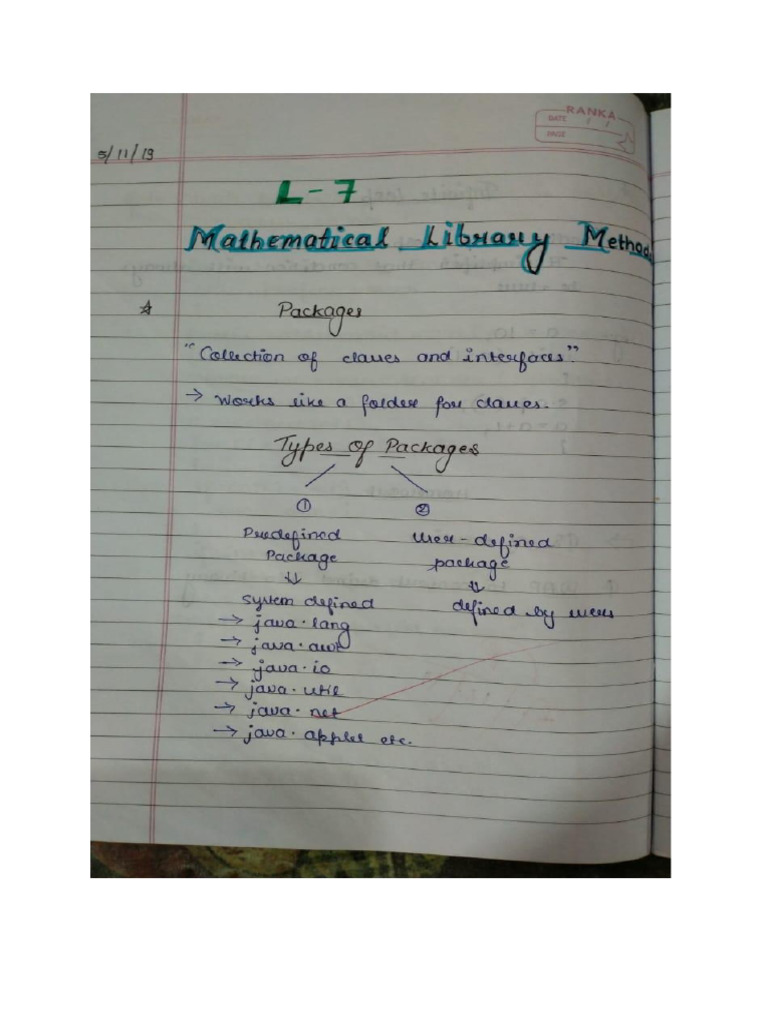 RANKA
DATE / /
PAGE
5/11/19
L-7
Mathematical Library Method
☆ Packages
"Collection of classes and interfaces"
→ Works like a folder for classes.
Types of Packages
① ②
Predefined User-defined
Package package
⇓ ⇓
System defined defined by users
→ java.lang
→ java.awt
→ java.io
→ java.util
→ java.net
→ java.applet etc.